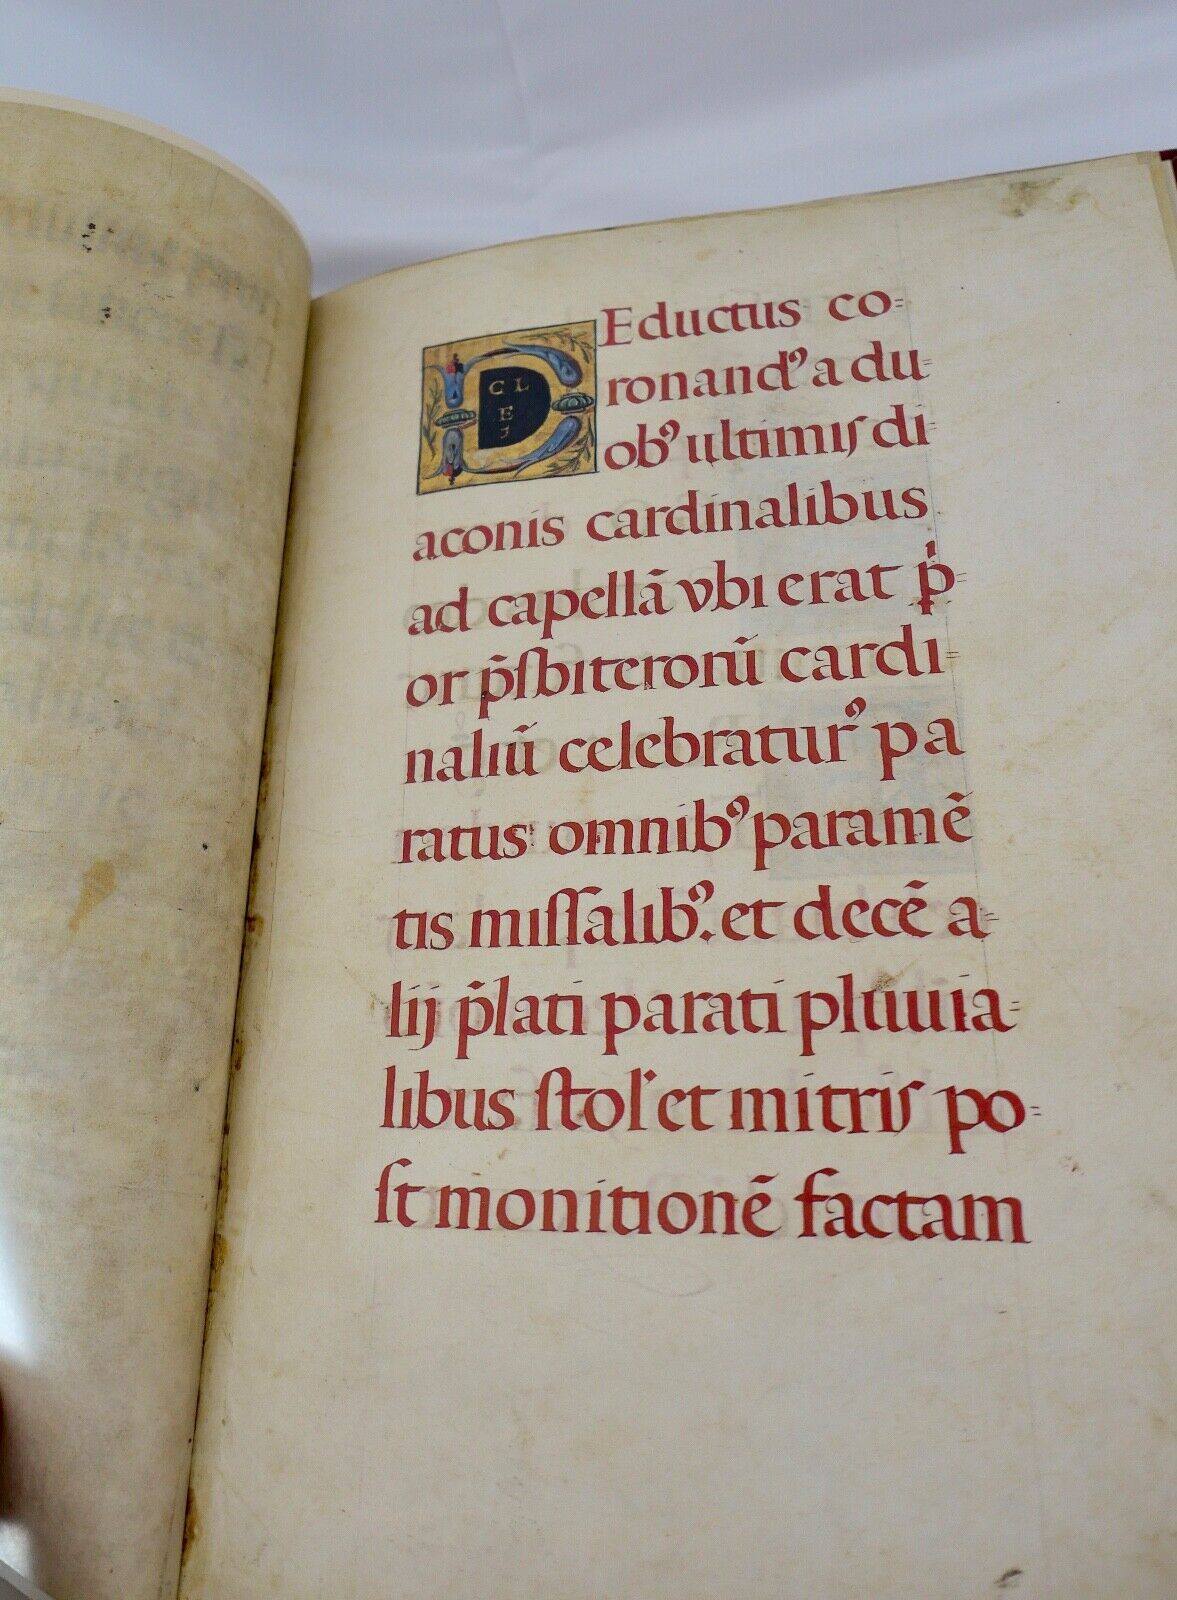 DEductus co=
ronandꝰ a du=
obꝰ ultimis di=
aconis cardinalibus
ad capellā vbi erat p̍=
or p̃sbiterorū cardi=
naliū celebraturꝰ pa
ratus omnibꝰ paramē
tis missalibꝰ. et decē a=
lij p̃lati parati pluuia=
libus stol' et mitris po=
st monitionē factam
CL
E